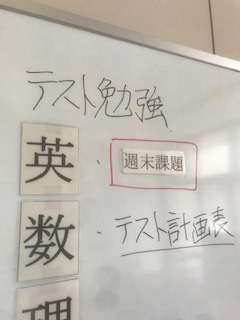 テスト勉強
英 ・ 週末課題
数 ・ テスト計画表
理